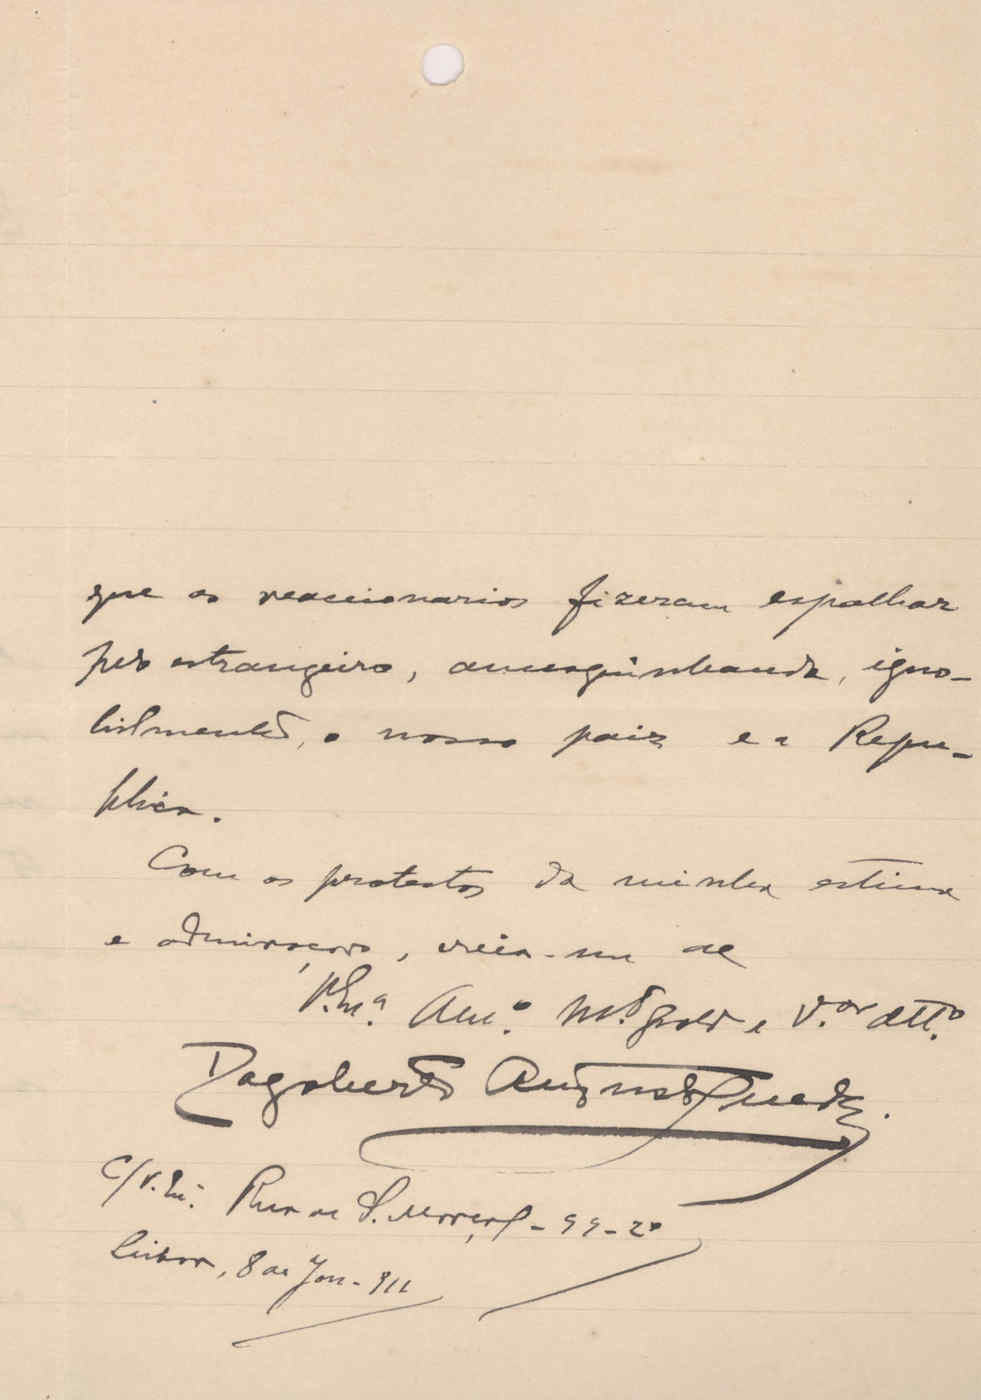 que os reaccionarios fizeram espalhar
pelo estrangeiro, amesquinhando, igno-
bilmente, o nosso paiz e a Repu-
plica.
Com os protestos da minha estima
e admiração, creia-me de
V. Ex.ª Am.º M.to grato e V.or att.º
Dagoberto Augusto Guedes.
C/ V. Ex.ª Rua de S. Marçal - 99 - 2º
Lisboa, 8 de Jan. - 911